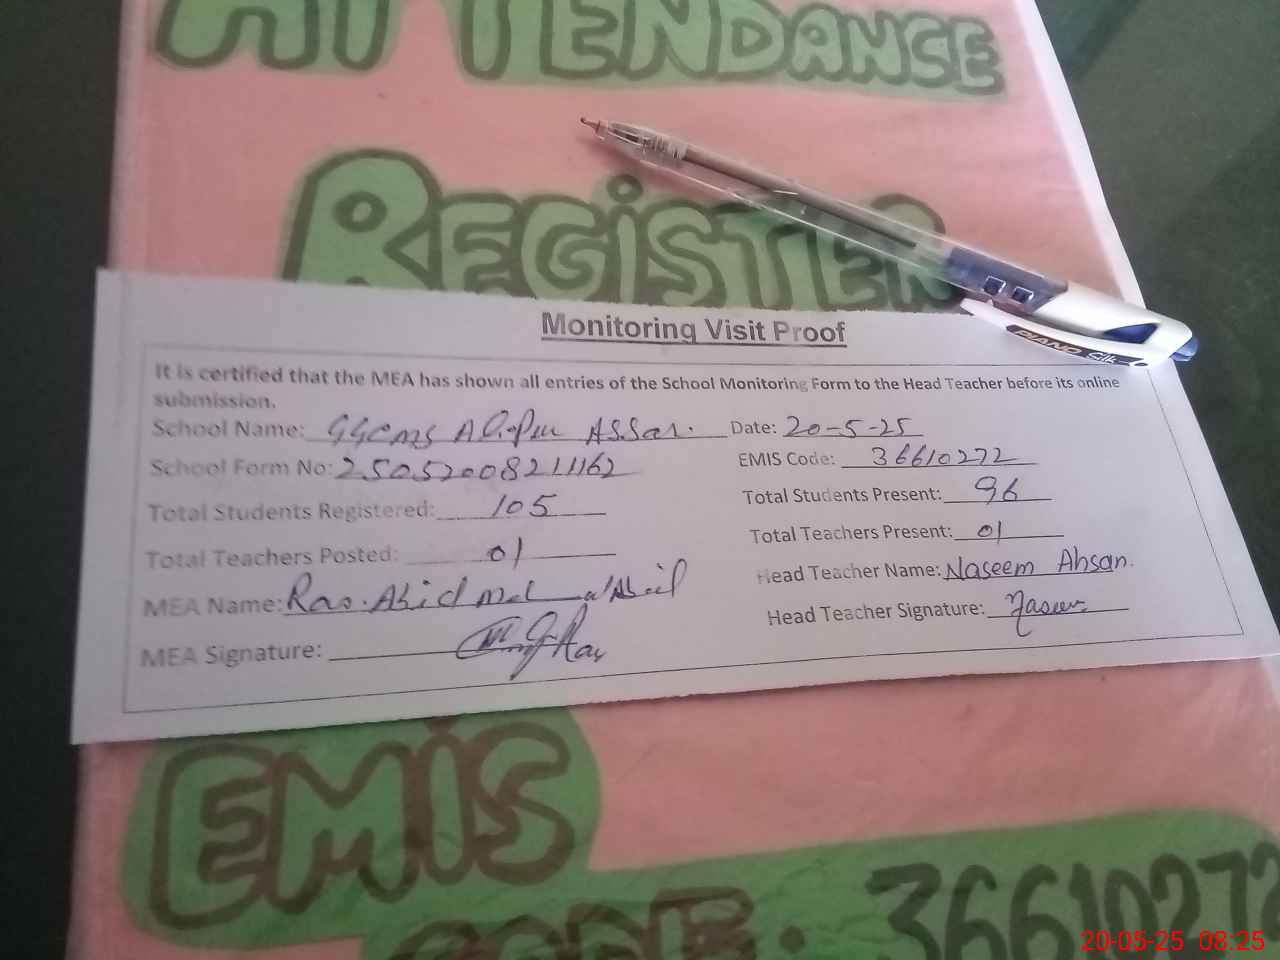 ATTENDANCE
REGISTER
PIANO Silk
Monitoring Visit Proof
It is certified that the MEA has shown all entries of the School Monitoring Form to the Head Teacher before its online
submission.
School Name: GGCMS Alipur Assar. Date: 20-5-25
School Form No: 25052008211162 EMIS Code: 36610272
Total Students Registered: 105 Total Students Present: 96
Total Teachers Posted: 01 Total Teachers Present: 01
MEA Name: Rao. Abid Head Teacher Name: Naseem Ahsan.
MEA Signature: Head Teacher Signature: Naseem
EMIS
CODE: 36610272
20-05-25 08:25